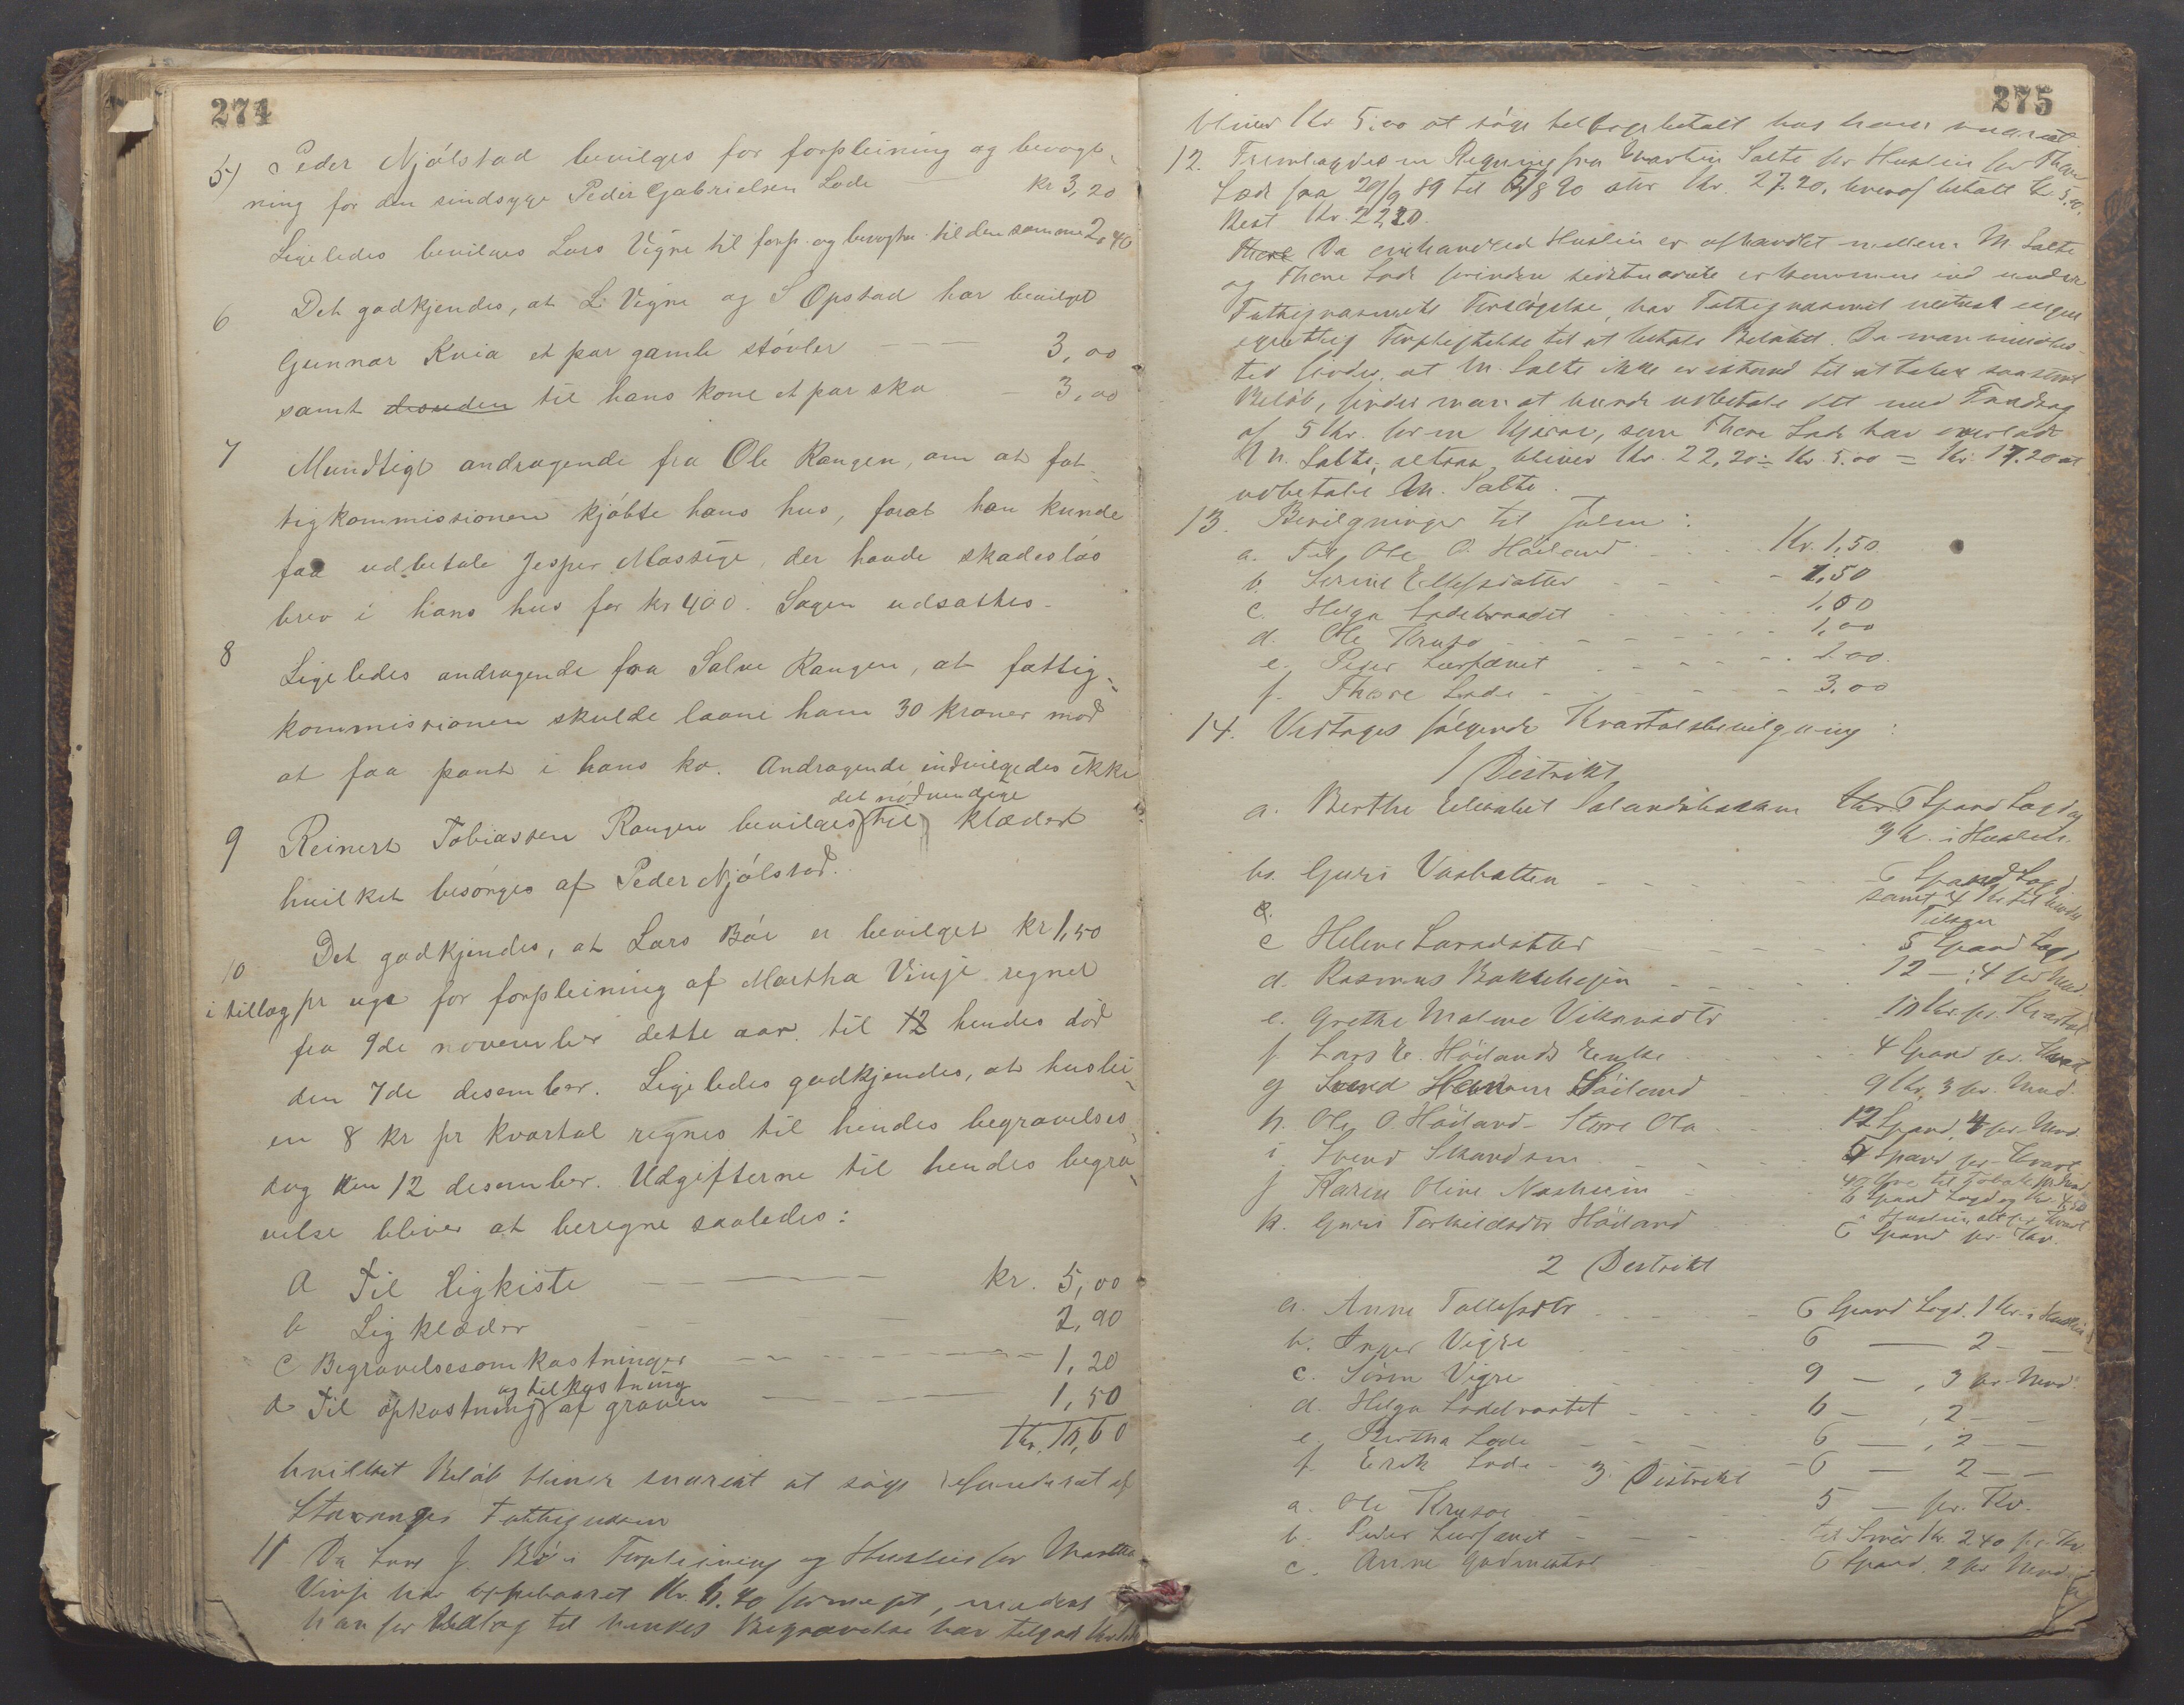 274
5) Peder Njólstad bevilges for forpleining og bevogt-
ning for den sindsyge Peder Gabrielsen Lode kr 3,20
Ligeledes bevilges Lars Vigre til forp. og bevogtn. til den samme 2,40
6 Det godkjendes, at L. Vigre og S Opstad har bevilget
Gunnar Kvia et par gamle stóvler 3,00
samt desuden til hans kone et par sko 3,00
7 Mundtligt andragende fra Ole Rangen, om at fat-
tigkommissionen kjóbte hans hus, forat han kunde
faa udbetale Jesper Mossige, der havde skadeslós
brev i hans hus for kr 400. Sagen udsattes.
8 Ligeledes andragende fra Salve Rangen, at fattig-
kommissionen skulde laane ham 30 kroner mod
at faa pant i hans ko. Andragende indvilgedes ikke
det nódvendige
9 Reinert Tobiassen Rangen bevilges til klæder
hvilket besórges af Peder Njólstad.
10 Det godkjendes, at Lars Bóe er bevilget kr 1,50
i tillæg pr uge for forpleining af Martha Vinje regnet
fra 9de november dette aar til 12 hendes dód
den 7de desember. Ligeledes godkjendes, at huslei-
en 8 kr pr kvartal regnes til hendes begravelses-
dag den 12 desember. Udgifterne til hendes begra-
velse bliver at beregne saaledes:
a Til ligkiste kr. 5,00
b Ligklæder 2,90
c Begravelsesomkostninger 1,20
og tilkastning
d Til opkastning af graven 1,50
Kr. 10,60
hvilket Belób bliver snarest at sóge refunderet af
Stavanger Fattigvæsen
11 Da Lars J. Bó i Forpleining og Huslei for Martha
Vinje har oppebaaret Kr. 6.40 formeget, medens
han for Udlæg til hendes Begravelse har tilgode
275
bliver Kr 5.00 at sóge tilbagebetalt hos ham snarest.
12. Fremlagdes en Regning fra Martin Salte for Huslei for Thore
Lode fra 20/9 89 til 8 90 stor Kr. 27.20, hvoraf betalt Kr 5,00.
Rest Kr. 22.20.
Thore Da omhandled Huslei er afhandlet mellem M. Salte
og Thore Lode forinden sidstnævnte er kommen ind under
Fattigvæsenets Forsórgelse, har Fattigvæsenet neppe nogen
egentlig Forpligtelse til at betale Belóbet. Da man imidler-
tid finder, at M. Salte ikke er istand til at taale saastort
Belób, finder man at burde udbetale det med Fradrag
af 5 Kr. for en Kjærre, som Thore Lode har overladt
M. Salte, altsaa bliver Kr. 22,20 ÷ Kr. 5.00 = Kr. 17.20 at
udbetale M. Salte.
13. Bevilgninger til Julen:
a. Til Ole O. Hóiland Kr. 1,50
b. Serine Ellefsdatter 1,50
c. Helga Lodebraadet 1,00
d. Ole Kruso 1,00
e. Peder 2.00
f. Thore Lode 3.00
14. Vedtages fólgende Kvartalsbevilgning:
1 Distrikt
a. Berthe Elisabet 6 Spand Logd og
3 Kr. i Huslei.
b. Guri Vashatten 6 Spand Logd
samt 4 Kr til hendes
c Helene Larsdatter 5 Spand Logd
d. Rasmus Bakkehejen 12 — : 4 pr Mnd.
e. Grethe Malene 10 Kr. pr. Kvartal
f. Lars E. Hóilands Enke 4 Spand pr. Kvart
g Svend Hóiland 9 Kr, 3 pr. Mnd.
h. Ole O. Hóiland - Store Ola 12 Spand, 4 pr. Mnd.
i Svend 5 Spand pr. Kvart
j Karen Oline Nasheim
6 Spand Logd og Kr. 4.50
i Huslei, alt pr. Kvart
k. Guri Torkildsdtr Hóiland 6 Spand pr. Kv.
2 Distrikt
a. Anne Tollefsdtr 6 Spand Logd. 1 Kr. i Huslei
b. Inger Vigre 6 — 2 —
c. Sóren Vigre 9 — , 3 pr. Mnd.
d. Helga Lodebraatet 6 — , 2 —
e. Bertha Lode 6 — , 2 —
f. Erik Lode 6 — 2 —
3. Distrikt
a. Ole Krusoe 5 — pr. Kv.
b. Peder til Smór Kr. 2 40 pr. Kv
c. Anne Gudmunds 6 Spand, 2 pr Mnd